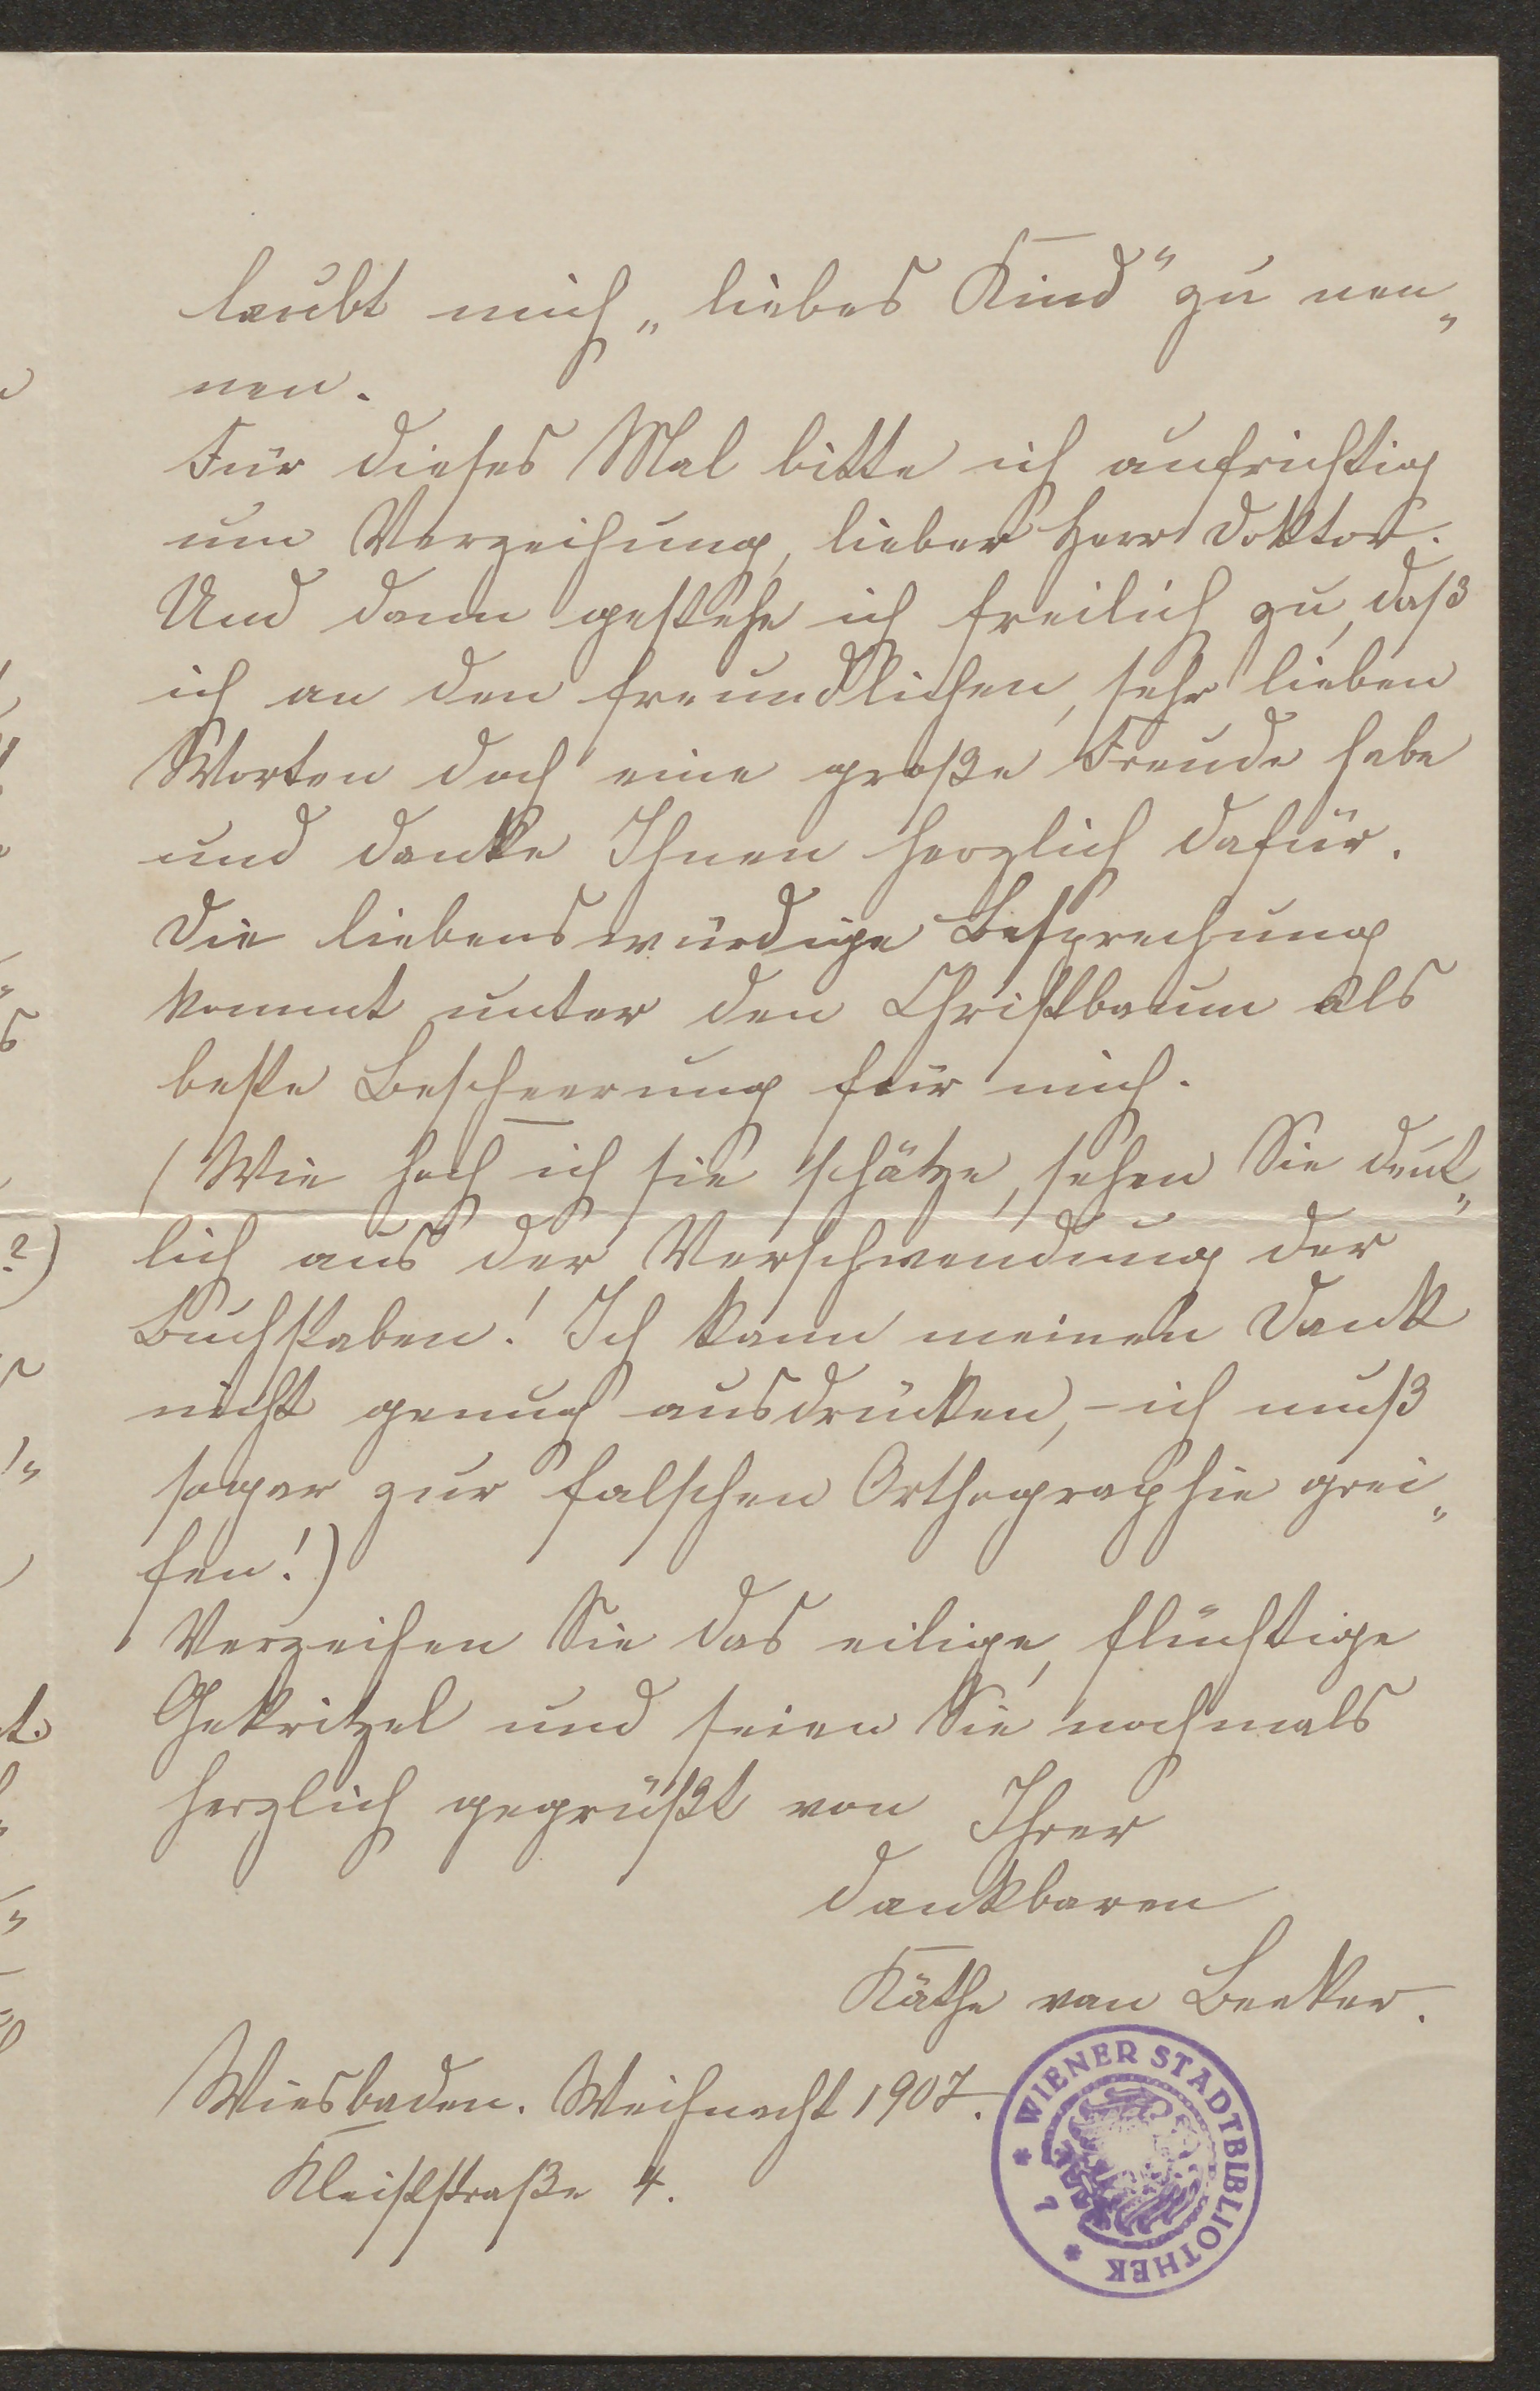 laubt mich „liebes Kind“ zu nen„
nen.
Für dieses Mal bitte ich aufrichtig
um Verzeihung, lieber Herr Doktor.
Und dann gestehe ich freilich zu, daß
ich an den freundlichen, sehr lieben
Worten doch eine große Freude habe
und danke Ihnen herzlich dafür.
Die liebenswürdige Besprechung
kommt unter den Christbaum als
beste Bescheerung für mich.
(Wie hoch ich sie schätze, sehen Sie deut„
lich aus der Verschwendung der
Buchstaben! Ich kann meinen Dank
nicht genug ausdrücken, – ich muß
sogar zur falschen Orthographie grei„
fen!)
Verzeihen Sie das eilige, flüchtige
Gekritzel und seien Sie nochmals
herzlich gegrüßt von Ihrer
dankbaren
Käthe van Beeker.
Wiesbaden. Weihnacht 1907.
Kleiststraße 4.
WIENER STADTBIBLIOTHEK
7